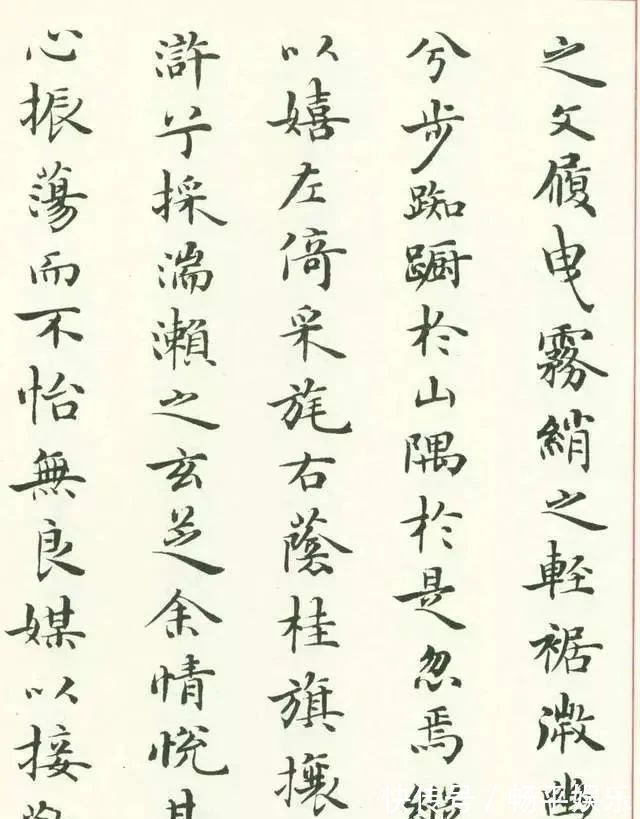 之文履曳霧綃之輕裾微幽
兮步踟躕於山隅於是忽焉縱
以嬉左倚采旄右蔭桂旗攘
滸兮採湍瀨之玄芝余情悅其
心振蕩而不怡無良媒以接
快传号/畅平娱乐